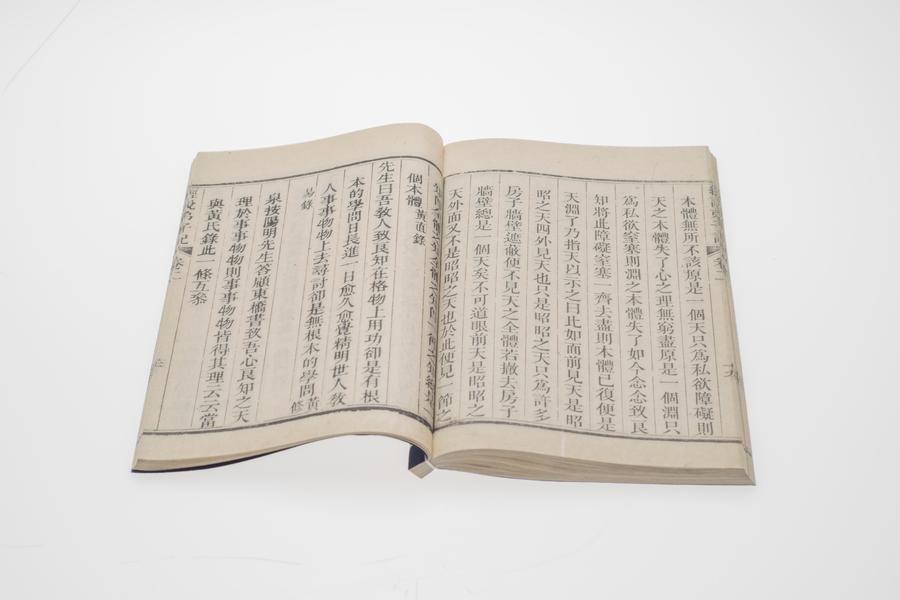 本體無所不該原是一個天只爲私欲障礙則
天之本體失了心之理無窮盡原是一個淵只
爲私欲窒塞則淵之本體失了如今念念致良
知將此障礙窒塞一齊去盡則本體已復便是
天淵了乃指天以示之曰比如面前見天是昭
昭之天四外見天也只是昭昭之天只爲許多
房子牆壁遮蔽便不見天之全體若撤去房子
牆壁總是一個天矣不可道眼前天是昭昭之
天外面又不是昭昭之天也於此便見一節之
個本體 黃直錄
先生曰吾教人致良知在格物上用功卻是有根
本的學問日長進一日愈久愈覺精明世人教
人事事物物上去尋討卻是無根本的學問 黃修
易錄
泉按陽明先生答顧東橋書致吾心良知之天
理於事事物物則事事物物皆得其理云云當
與黃氏錄此一條互參